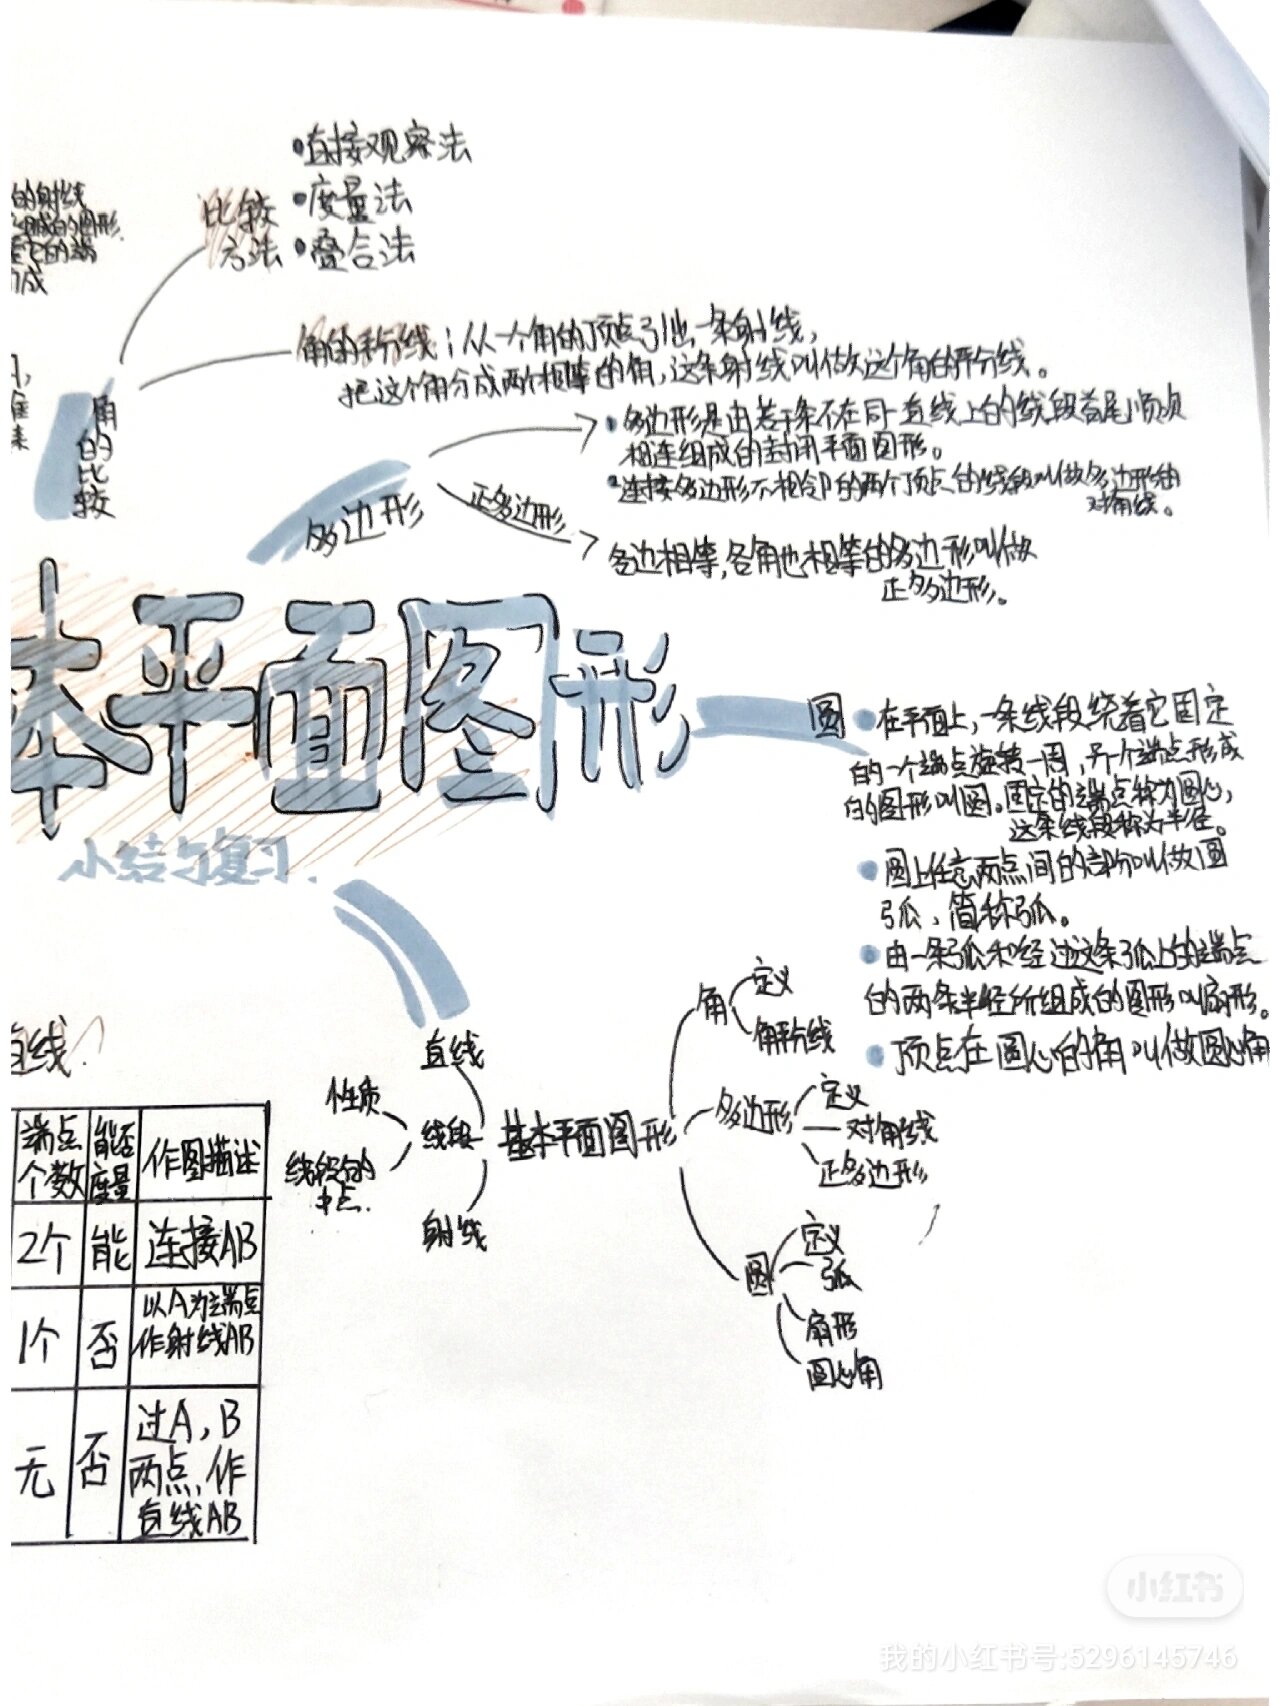 直接观察法
的射线
比较
度量法
组成的图形.
方法
叠合法
成
角的平分线：从一个角的顶点引出一条射线，
把这个角分成两个相等的角，这条射线叫做这个角的平分线。
角的比较
多边形是由若干条不在同一直线上的线段首尾顺次
相连组成的封闭平面图形。
连接多边形不相邻的两个顶点的线段叫做多边形的
对角线。
多边形
正多边形
各边相等，各角也相等的多边形叫做
正多边形。
本平面图形
小结与复习.
圆
在平面上，一条线段绕着它固定
的一个端点旋转一周，另一个端点形成
的图形叫圆。固定的端点称为圆心，
这条线段称为半径。
圆上任意两点间的部分叫做圆
弧，简称弧。
由一条弧和经过这条弧上的端点
的两条半径所组成的图形叫扇形。
顶点在圆心的角叫做圆心角
直线.
直线
性质
线段
线段的
中点.
射线
基本平面图形
角
定义
角平分线
多边形
定义
对角线
正多边形
圆
定义
弧
扇形
圆心角
端点个数 能否度量 作图描述
2个 能 连接AB
1个 否 以A为端点作射线AB
无 否 过A，B两点，作直线AB
小红书
我的小红书号:5296145746